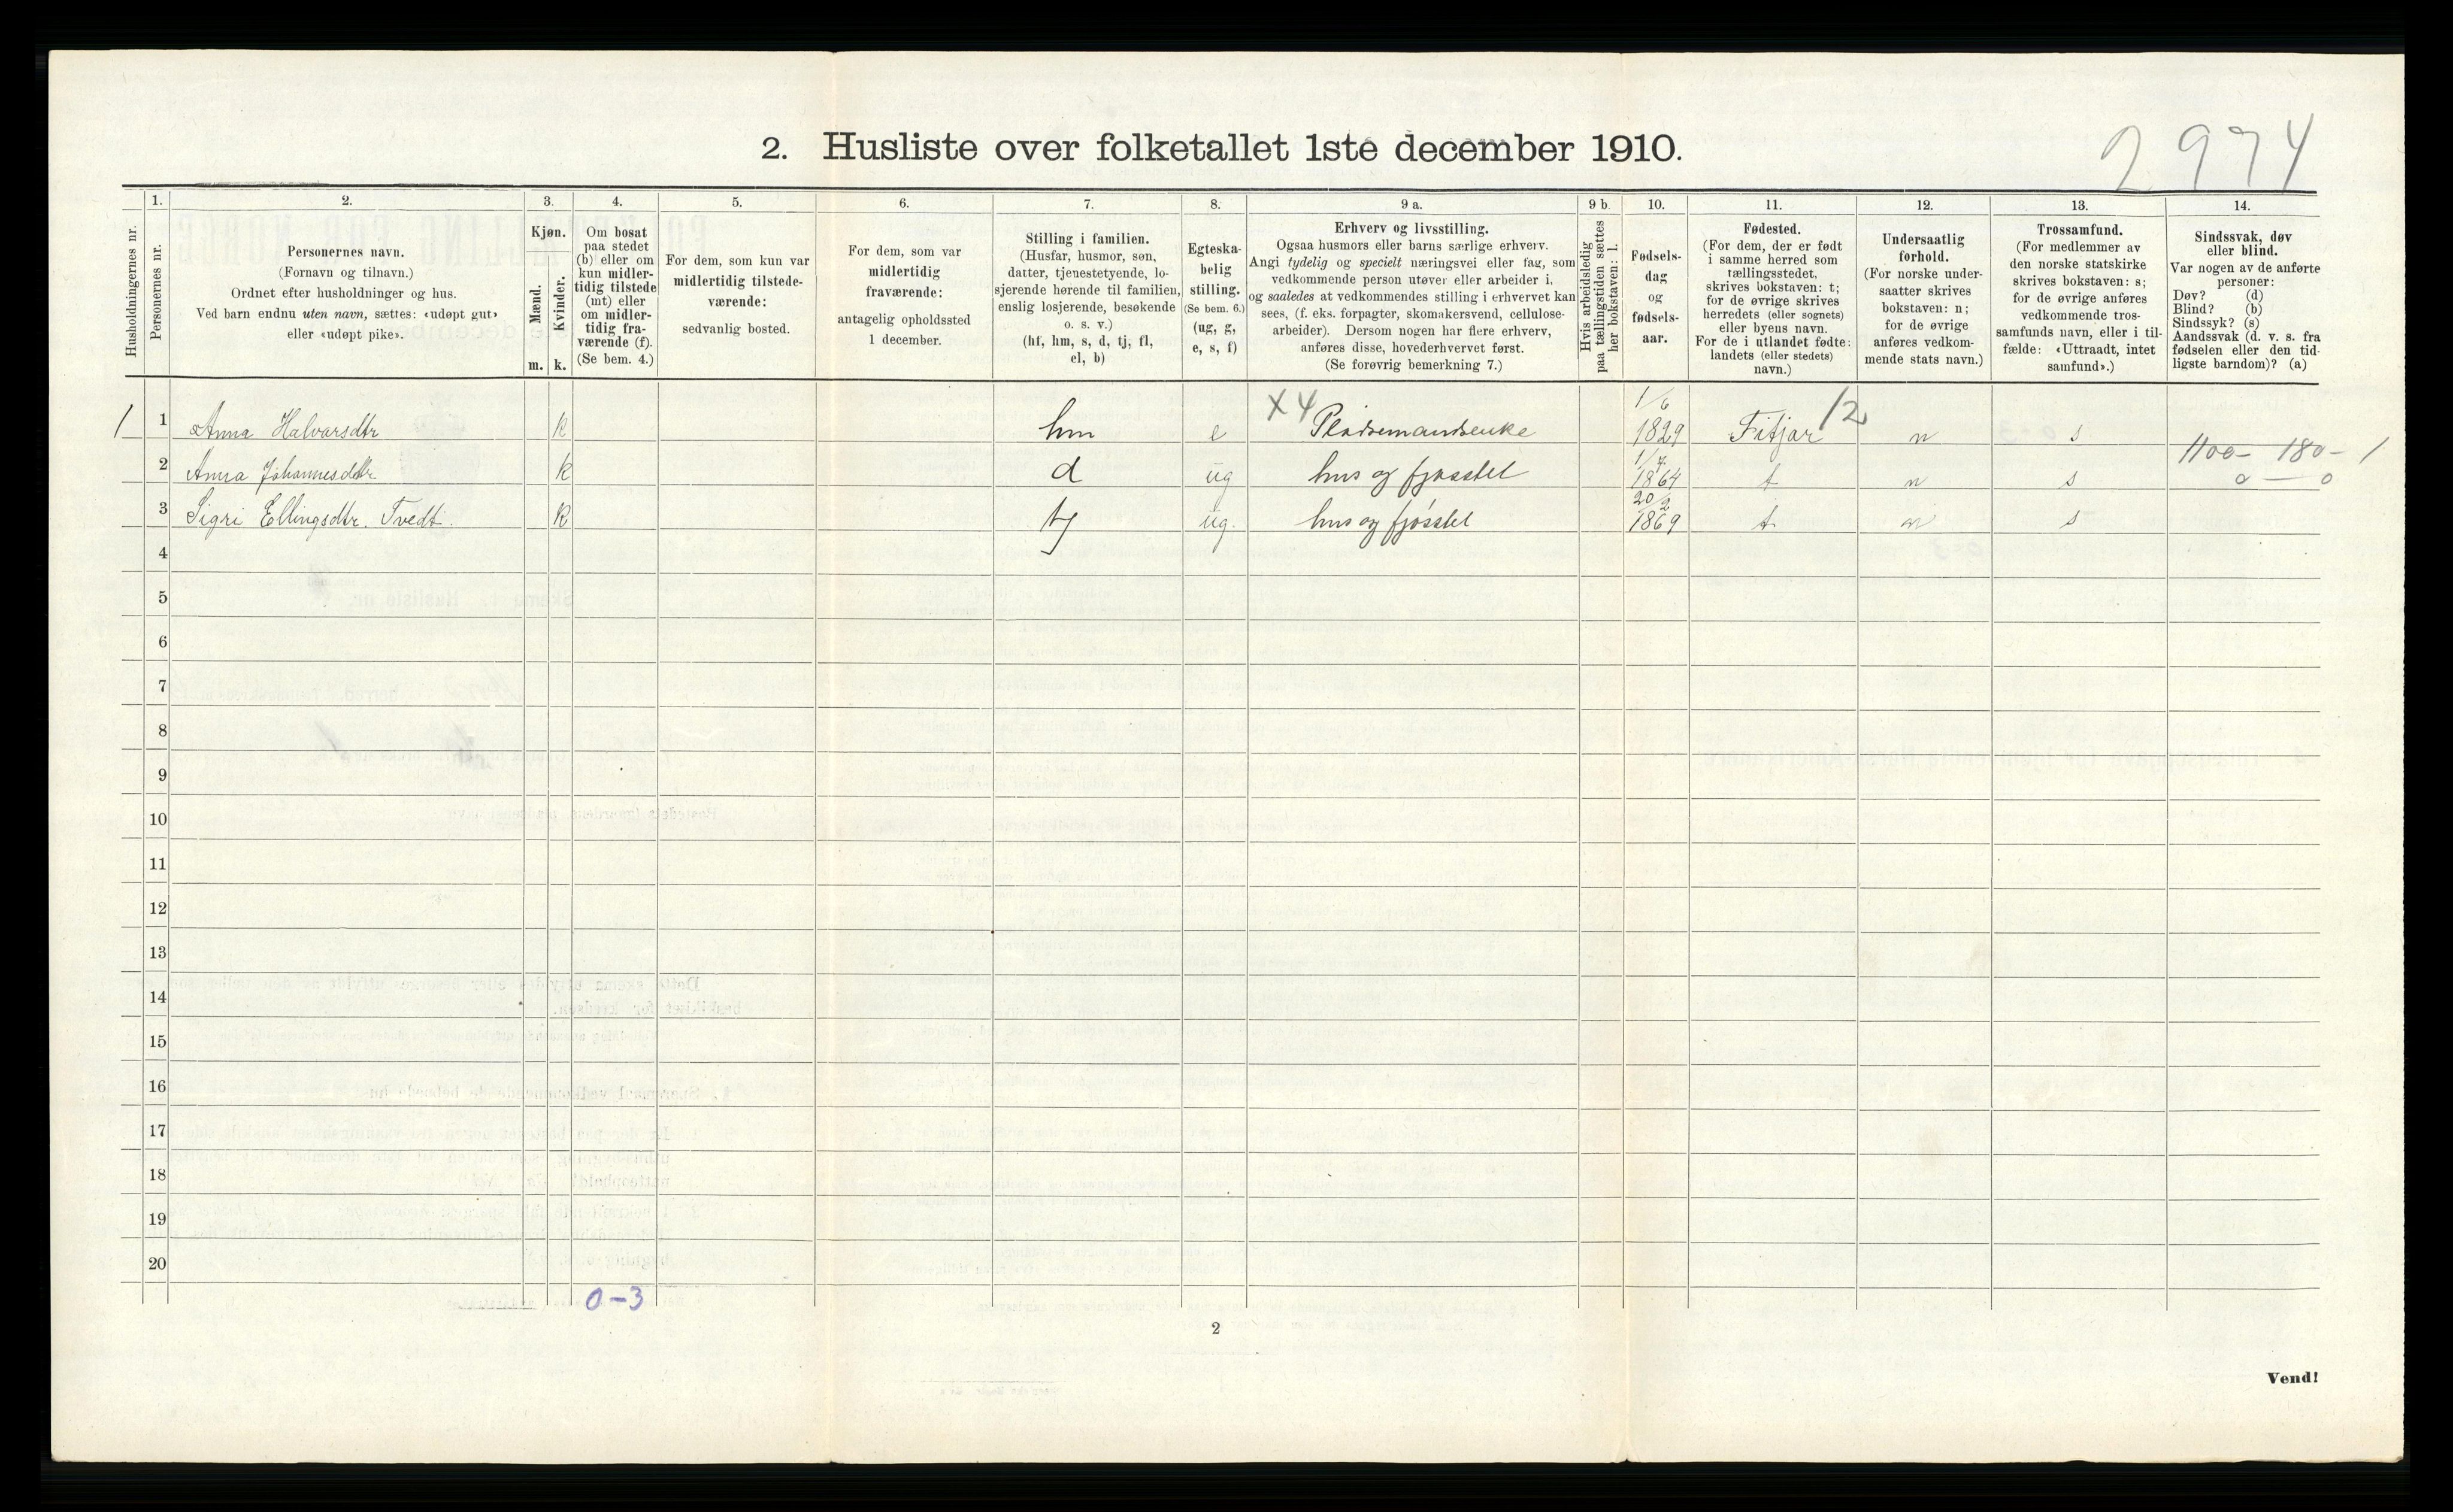 2974
2. Husliste over folketallet 1ste december 1910.
Husholdningernes nr.
1.
Personernes nr.
2.
Personernes navn.
(Fornavn og tilnavn.)
Ordnet efter husholdninger og hus.
Ved barn endnu uten navn, sættes: «udøpt gut»
eller «udøpt pike».
3.
Kjøn.
Mænd.
Kvinder.
m. k.
4.
Om bosat
paa stedet
(b) eller om
kun midler-
tidig tilstede
(mt) eller
om midler-
tidig fra-
værende (f).
(Se bem. 4.)
5.
For dem, som kun var
midlertidig tilstede-
værende:
sedvanlig bosted.
6.
For dem, som var
midlertidig
fraværende:
antagelig opholdssted
1 december.
7.
Stilling i familien.
(Husfar, husmor, søn,
datter, tjenestetyende, lo-
sjerende hørende til familien,
enslig losjerende, besøkende
o. s. v.)
(hf, hm, s, d, tj, fl,
el, b)
8.
Egteska-
belig
stilling.
(Se bem. 6.)
(ug, g,
e, s, f)
9 a.
Erhverv og livsstilling.
Ogsaa husmors eller barns særlige erhverv.
Angi tydelig og specielt næringsvei eller fag, som
vedkommende person utøver eller arbeider i,
og saaledes at vedkommendes stilling i erhvervet kan
sees, (f. eks. forpagter, skomakersvend, cellulose-
arbeider). Dersom nogen har flere erhverv,
anføres disse, hovederhvervet først.
(Se forøvrig bemerkning 7.)
9 b.
Hvis arbeidsledig
paa tællingstiden sættes
her bokstaven: l.
10.
Fødsels-
dag
og
fødsels-
aar.
11.
Fødested.
(For dem, der er født
i samme herred som
tællingsstedet,
skrives bokstaven: t;
for de øvrige skrives
herredets (eller sognets)
eller byens navn.
For de i utlandet fødte:
landets (eller stedets)
navn.)
12.
Undersaatlig
forhold.
(For norske under-
saatter skrives
bokstaven: n;
for de øvrige
anføres vedkom-
mende stats navn.)
13.
Trossamfund.
(For medlemmer av
den norske statskirke
skrives bokstaven: s;
for de øvrige anføres
vedkommende tros-
samfunds navn, eller i til-
fælde: «Uttraadt, intet
samfund».)
14.
Sindssvak, døv
eller blind.
Var nogen av de anførte
personer:
Døv? (d)
Blind? (b)
Sindssyk? (s)
Aandssvak (d. v. s. fra
fødselen eller den tid-
ligste barndom)? (a)
1 1 Anna Halvarsdtr k hm e X4 Pladsemandsenke 1/6 1829 Fitjar 12 n s
1100 - 180 - 1
2 Anna Johannesdtr k d ug hus og fjøsstel 1/7 1864 t n s 0 — 0
3 Sigri Ellingsdtr. Tvedt. k tj ug. hus og fjøsstel 20/2 1869 t n s
4
5
6
7
8
9
10
11
12
13
14
15
16
17
18
19
20
0-3
2
Vend!